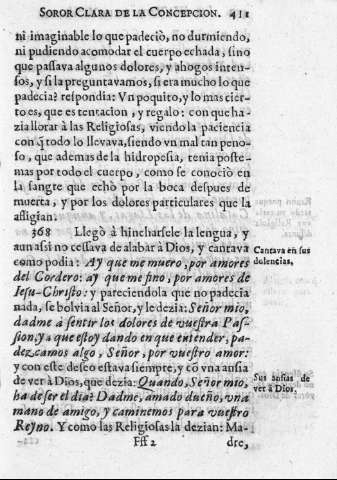 SOROR CLARA DE LA CONCEPCION. 411
ni imaginable lo que padeciò, no durmiendo,
ni pudiendo acomodar el cuerpo echada, sino
que passava algunos dolores, y ahogos inten-
sos, y si la preguntavamos, si era mucho lo que
padecia? respondia: Vn poquito, y lo mas cier-
to es, que es tentacion, y regalo: con que ha-
zia llorar à las Religiosas, viendo la paciencia
con q̃ todo lo llevava, siendo vn mal tan peno-
so, que ademas de la hidropesia, tenia poste-
mas por todo el cuerpo, como se conociò en
la sangre que echò por la boca despues de
muerta, y por los dolores particulares que la
afligian.
368 Llegò à hincharsele la lengua, y
aun assi no cessava de alabar à Dios, y cantava
como podia: Ay que me muero, por amores
del Cordero: ay que me fino, por amores de
Iesu-Christo: y pareciendola que no padecia
nada, se bolvia al Señor, y le dezia: Señor mio,
dadme à sentir los dolores de vuestra Pas-
sion, y a que estoy dando en que entender, pa-
dezcamos algo, Señor, por vuestro amor:
y con este deseo estava siempre, y cõ vna ansia
de ver à Dios, que dezia: Quando, Señor mio,
ha de ser el dia? Dadme, amado dueño, vna
mano de amigo, y caminemos para vuestro
Reyno. Y como las Religiosas la dezian: Ma-
Fff 2 dre,
Cantava en sus
dolencias.
Sus ansias de
ver à Dios.